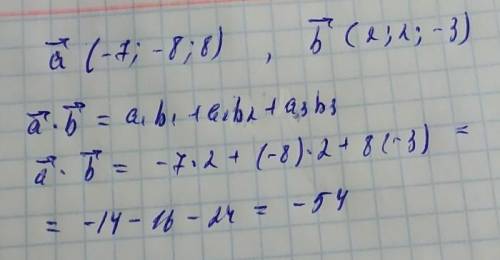 a⃗ (-7; -8; 8) , b⃗ (2; 2; -3)
a⃗ · b⃗ = a₁b₁ + a₂b₂ + a₃b₃
a⃗ · b⃗ = -7·2 + (-8)·2 + 8(-3) =
= -14 - 16 - 24 = -54